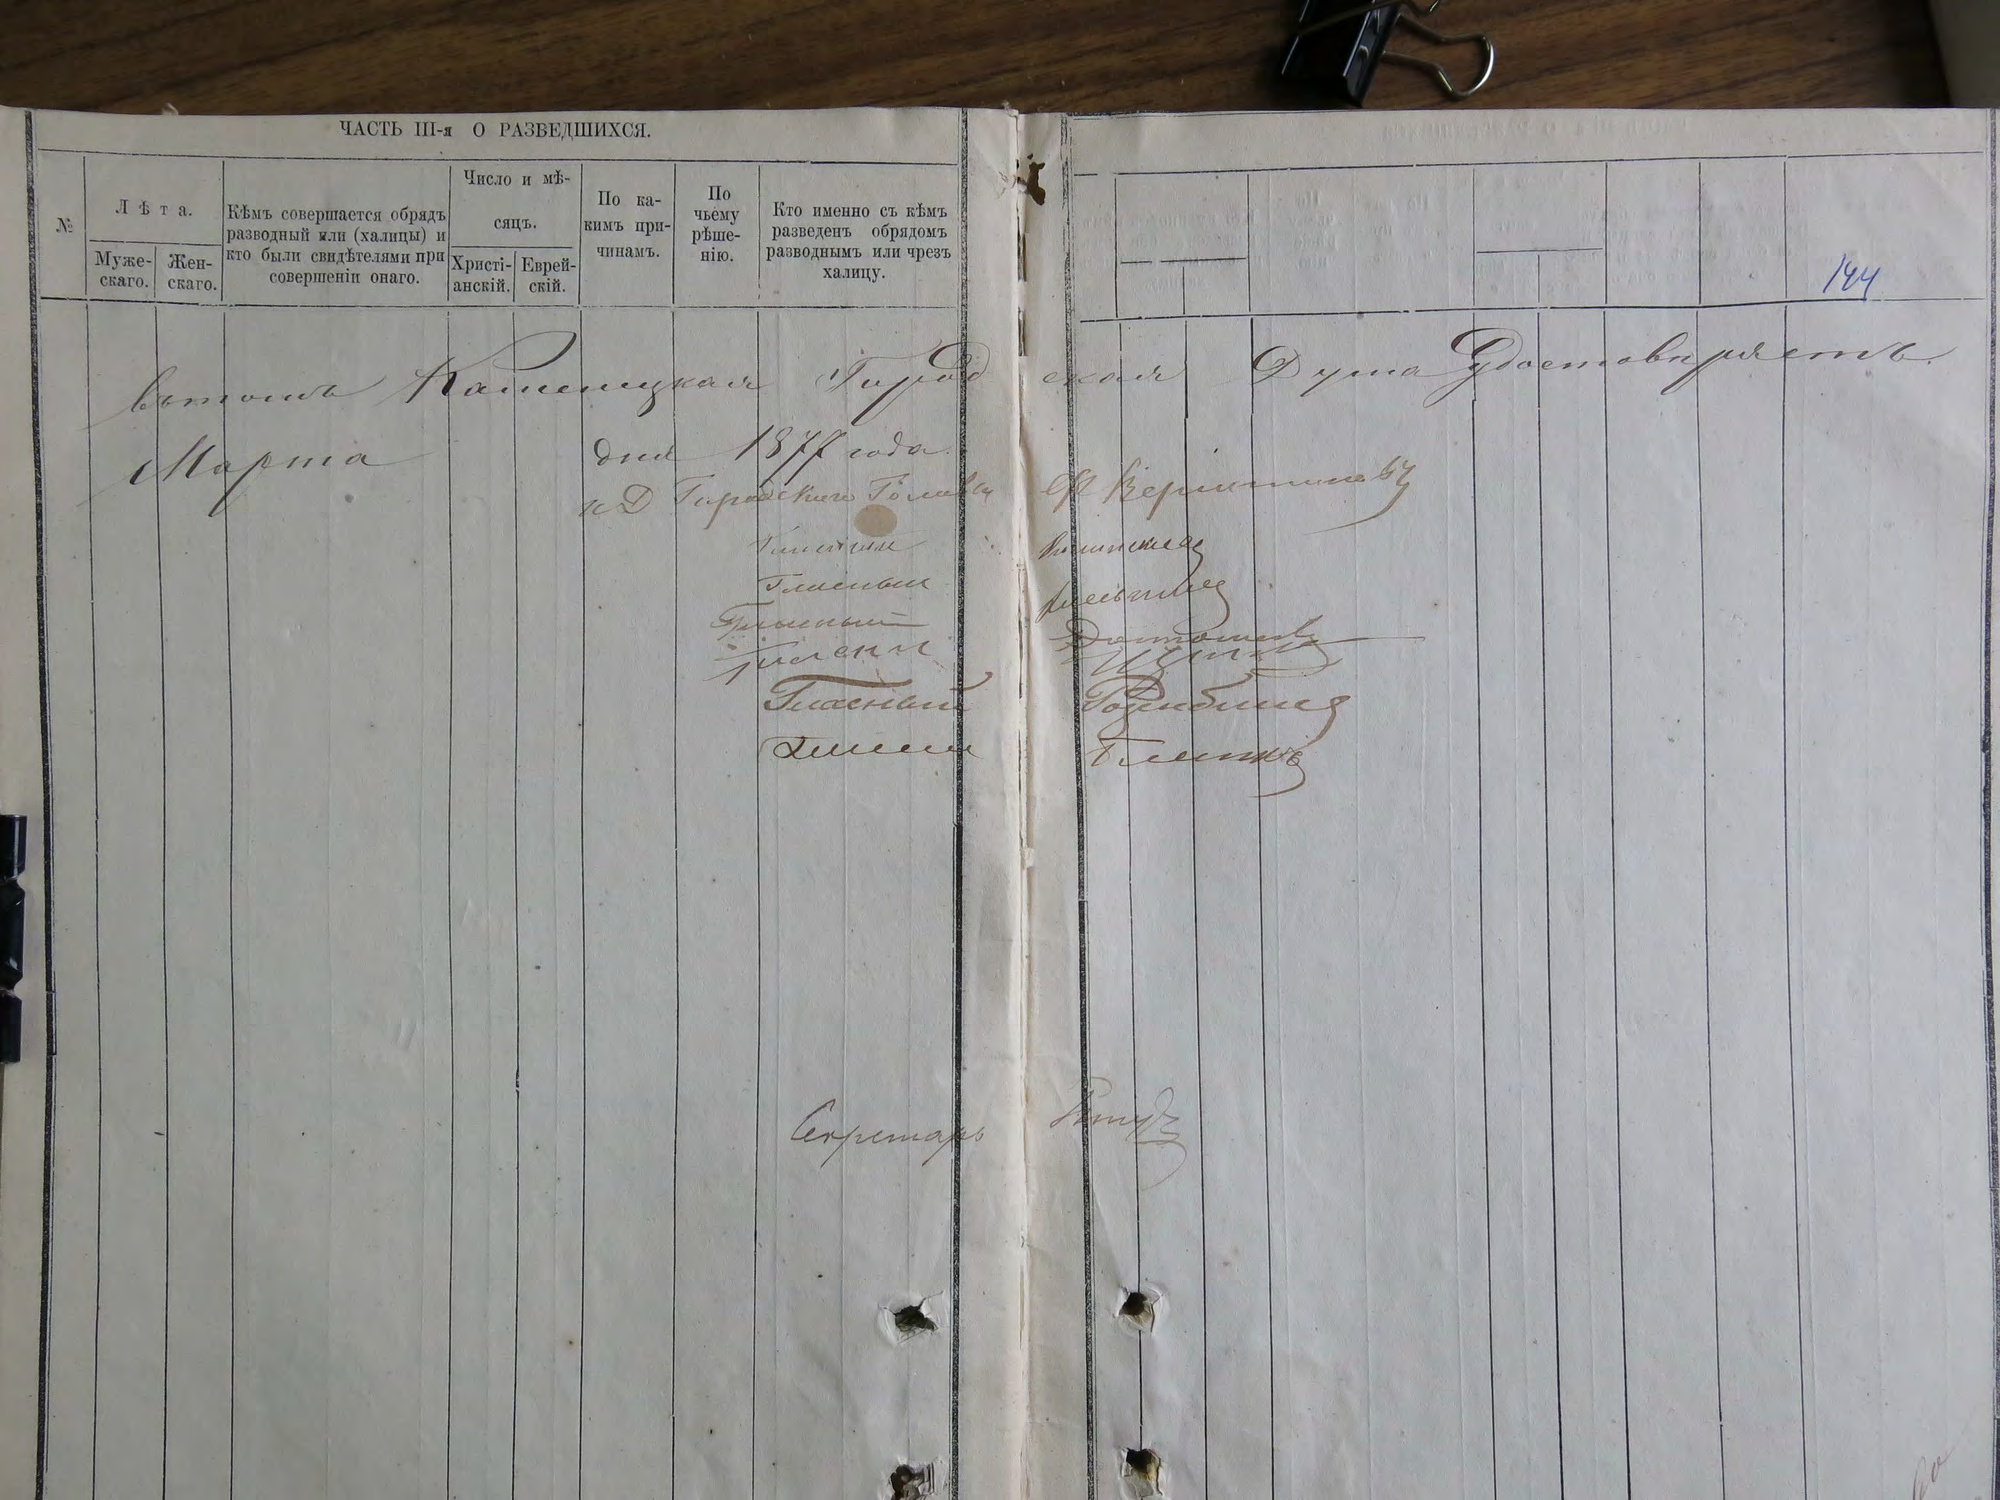 ЧАСТЬ III-я О РАЗВЕДШИХСЯ.
№
Лѣта.
Муже-
скаго.
Жен-
скаго.
Кѣмъ совершается обрядъ
разводный или (халицы) и
кто были свидѣтелями при
совершеніи онаго.
Число и мѣ-
сяцъ.
Христі-
анскій.
Еврей-
скій.
По ка-
кимъ при-
чинамъ.
По
чьему
рѣше-
нію.
Кто именно съ кѣмъ
разведенъ обрядомъ
разводнымъ или чрезъ
халицу.
144
вътомъ Каменецкая Городская Дума Удостовѣряетъ.
Марта дня 1877 года
и Д Городского Головы
Гласный
Гласный
Гласный
Гласный
Гласный
Гласный
Секретарь